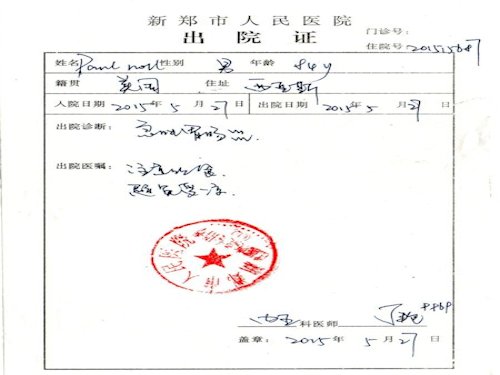 新郑市人民医院
出院证
门诊号:
住院号 201515687
姓名 Paul nott 性别 男 年龄 84y
籍贯 英国 住址 西亚斯
入院日期 2015年5月27日 出院日期 2015年5月27日
出院诊断: 急性胃肠炎
出院医嘱: 注意休息
随诊
科医师
盖章: 2015年5月27日